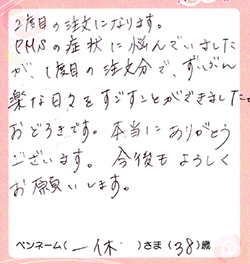 2度目の注文になります。
PMSの症状に悩んでいました
が、1度目の注文分で、ずいぶん
楽な日々をすごすことができました。
おどろきです。本当にありがとう
ございます。今後もよろしく
お願いします。
ペンネーム(一休)さま(38)歳